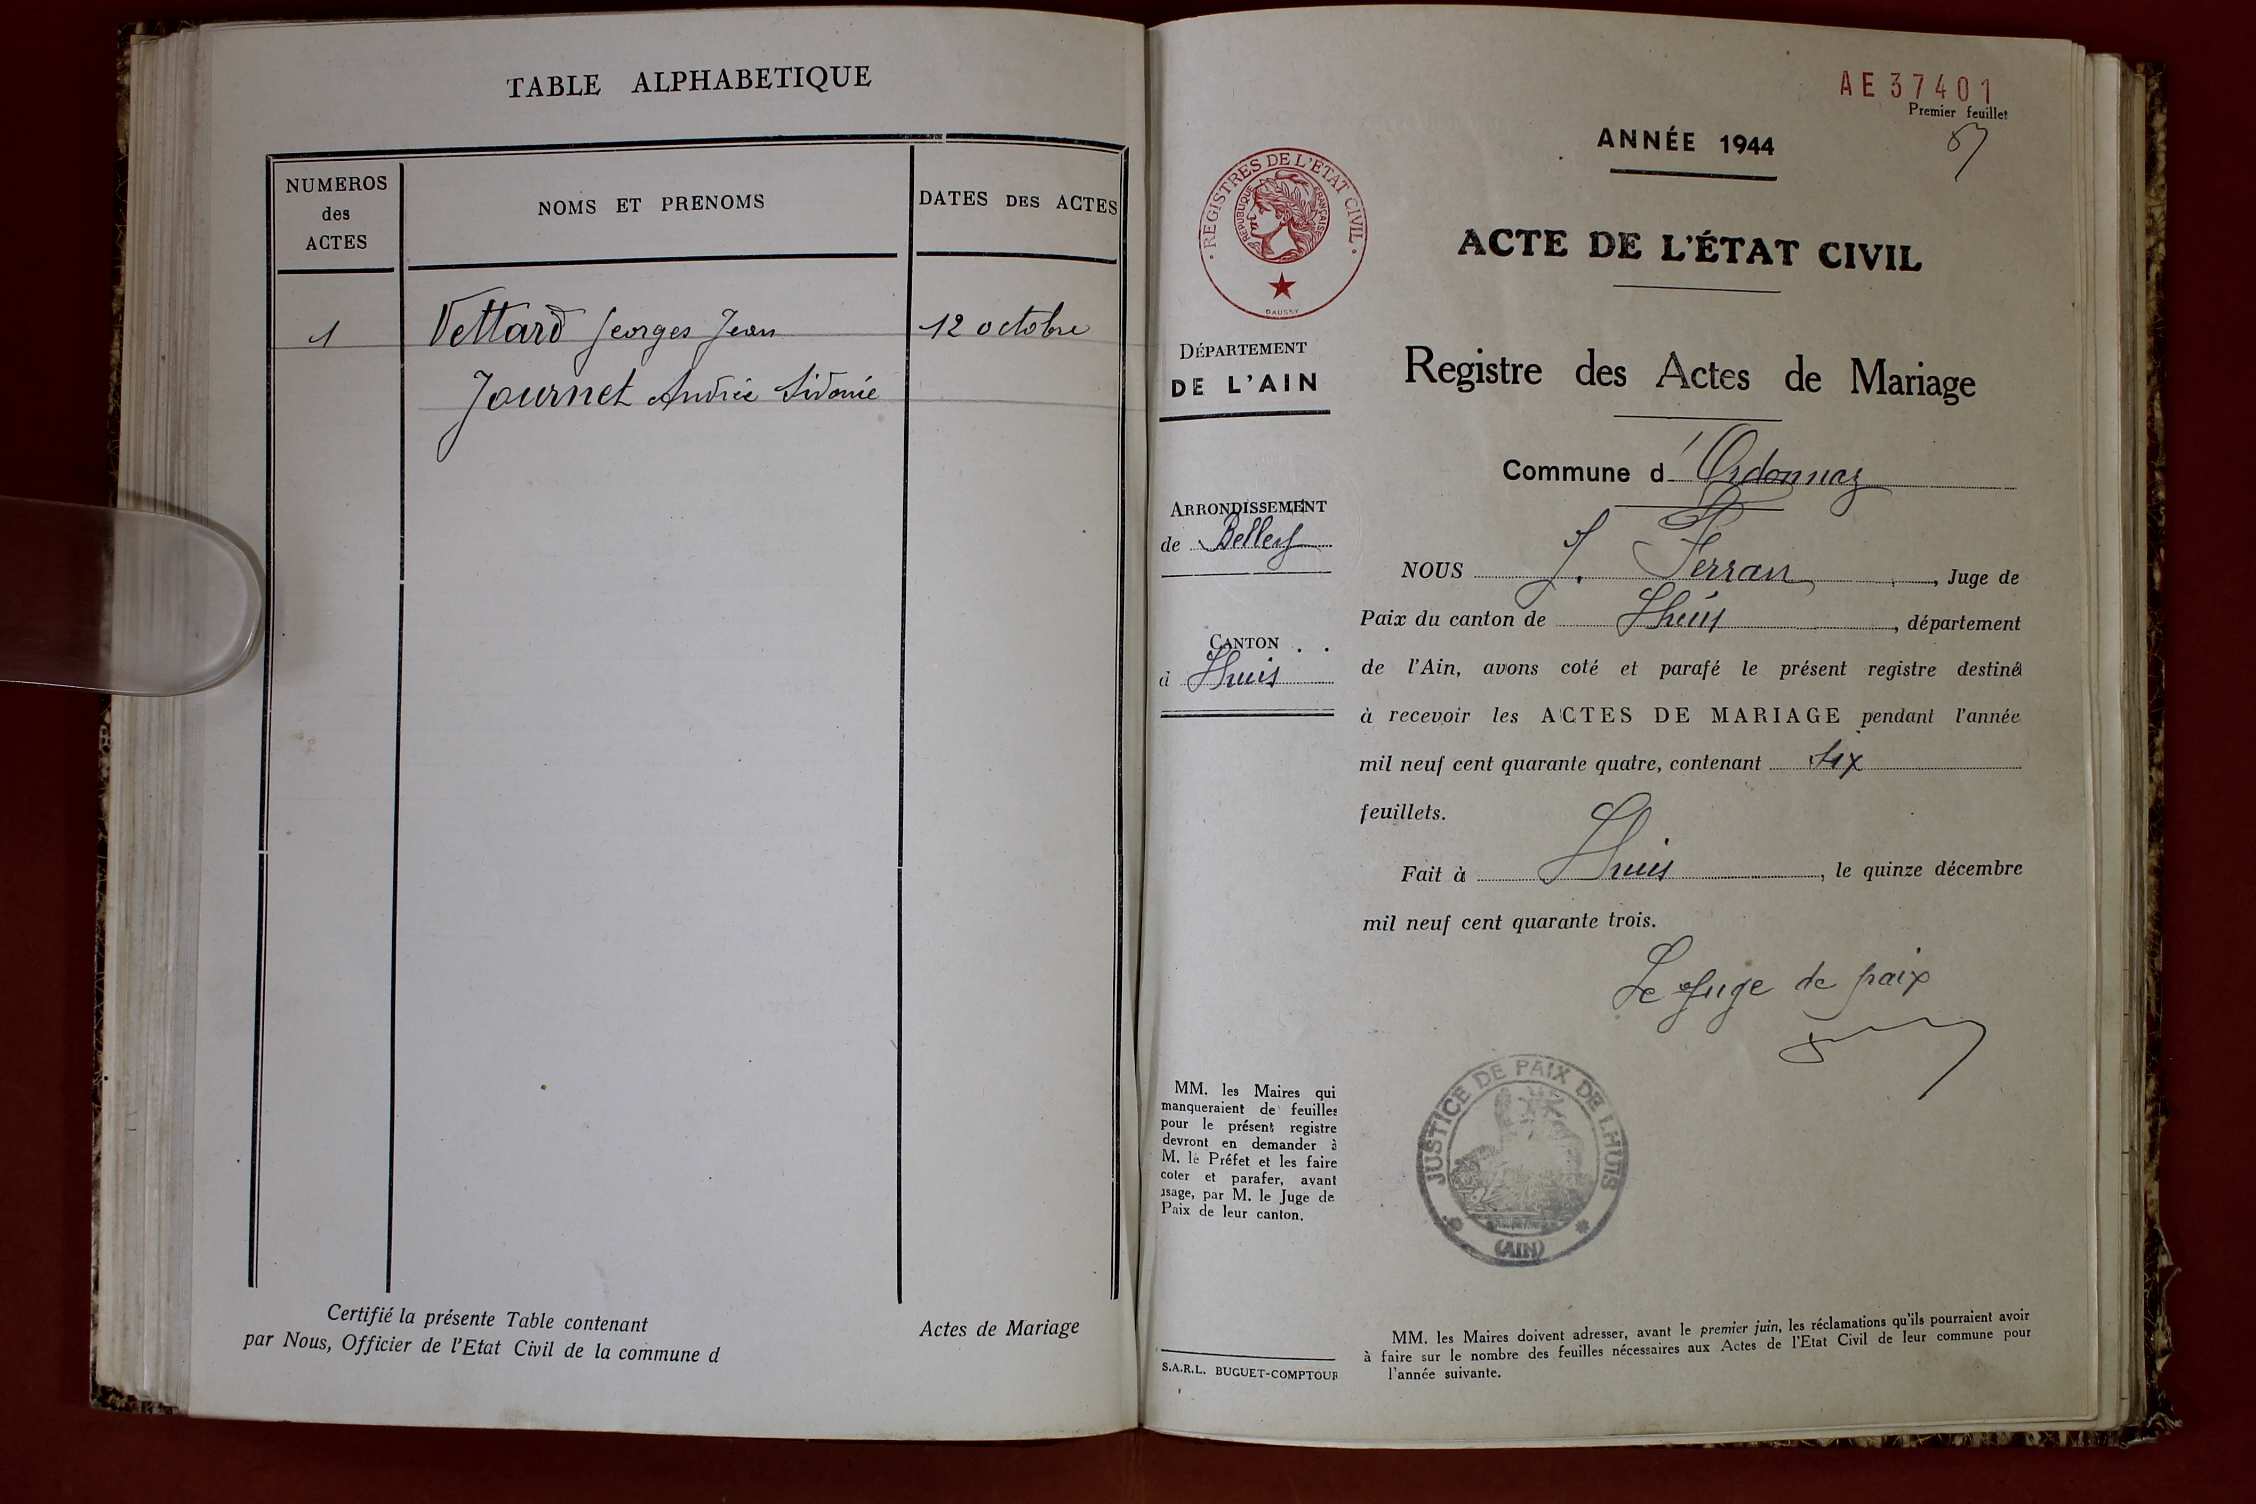 TABLE ALPHABETIQUE
NUMEROS
des
ACTES
NOMS ET PRENOMS
DATES DES ACTES
1
Vettard Georges Jean
12 octobre
Journet Andrée Sidonie
Certifié la présente Table contenant
Actes de Mariage
par Nous, Officier de l'Etat Civil de la commune d
AE37401
Premier feuillet
ANNÉE 1944
REGISTRES DE L'ÉTAT CIVIL
REPUBLIQUE FRANÇAISE
DAUSSY
ACTE DE L'ÉTAT CIVIL
DÉPARTEMENT
DE L'AIN
Registre des Actes de Mariage
Commune d'Ordonnaz
ARRONDISSEMENT
de Belley
NOUS J. Ferran, Juge de
Paix du canton de Lhuis, département
CANTON
à Lhuis
de l'Ain, avons coté et parafé le présent registre destiné
à recevoir les ACTES DE MARIAGE pendant l'année
mil neuf cent quarante quatre, contenant six
feuillets.
Fait à Lhuis, le quinze décembre
mil neuf cent quarante trois.
Le Juge de paix
MM. les Maires qui
manqueraient de feuilles
pour le présent registre
devront en demander à
M. le Préfet et les faire
coter et parafer, avant
usage, par M. le Juge de
Paix de leur canton.
JUSTICE DE PAIX DE LHUIS
(AIN)
MM. les Maires doivent adresser, avant le premier juin, les réclamations qu'ils pourraient avoir
à faire sur le nombre des feuilles nécessaires aux Actes de l'Etat Civil de leur commune pour
l'année suivante.
S.A.R.L. BUGUET-COMPTOUR